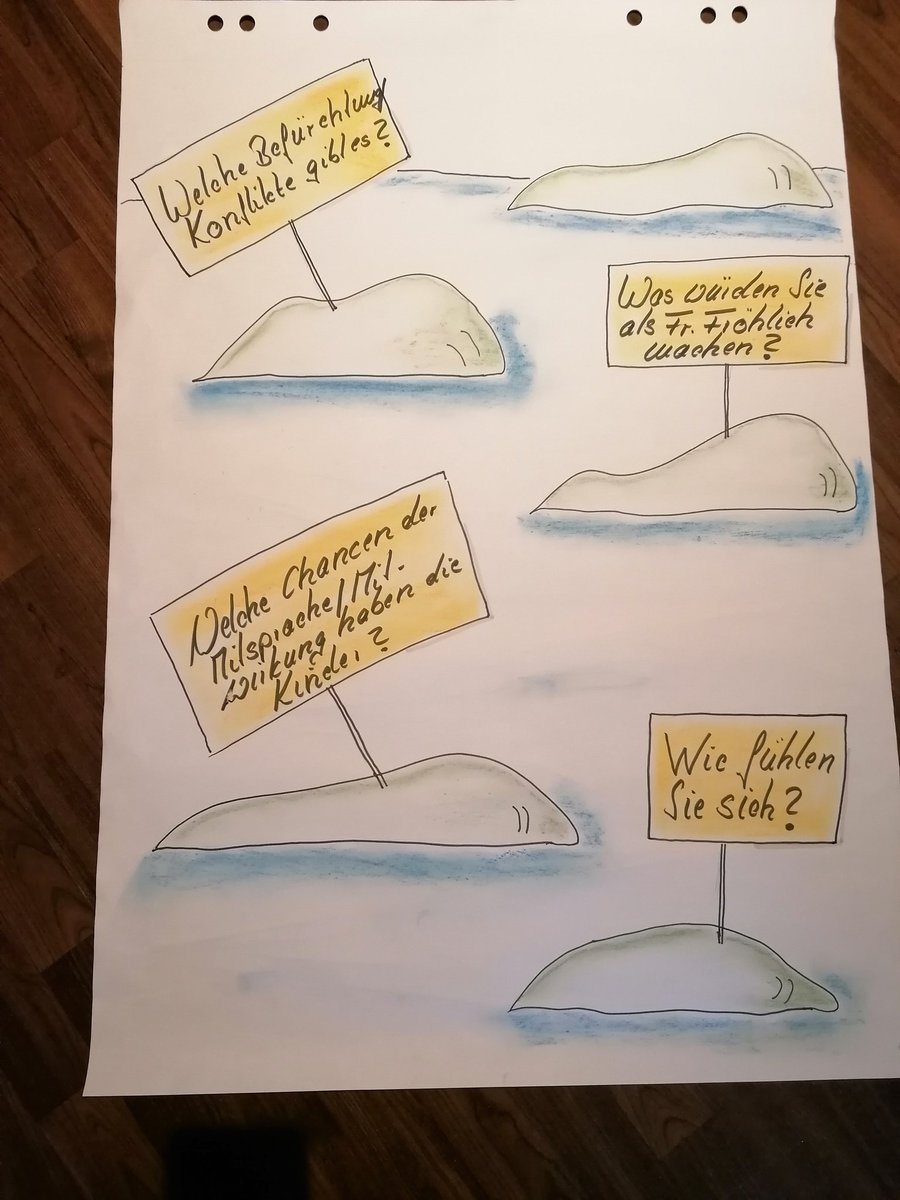 Welche Befürchtung
Konflikte gibt es?
Was würden Sie
als Fr. Fröhlich
machen?
Welche Chancen der
Mitsprache/Mit-
wirkung haben die
Kinder?
Wie fühlen
Sie sich?